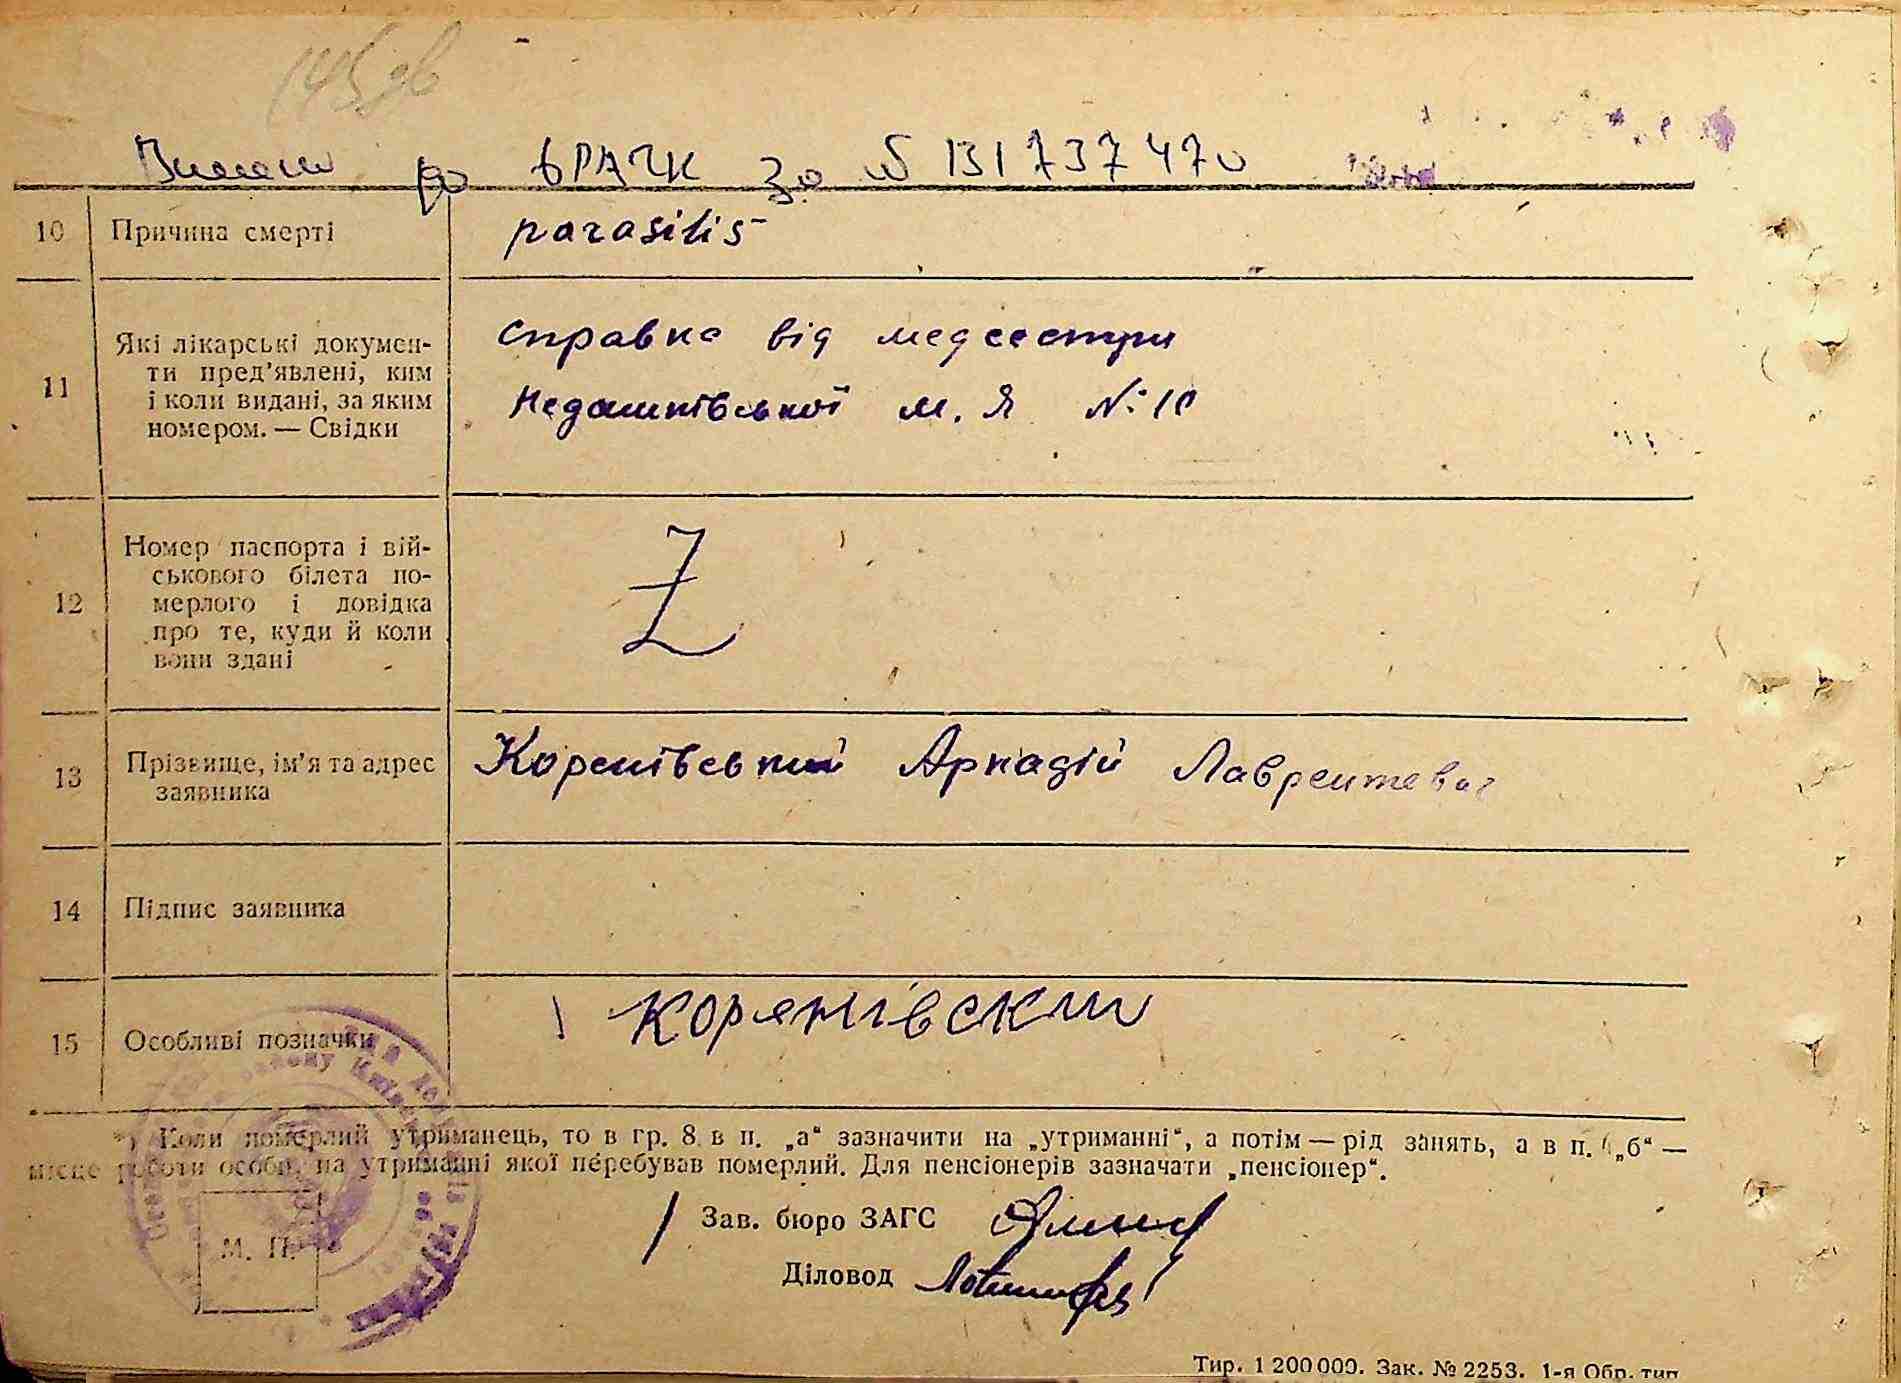 145 дв
до ВРАЧК за № 13173747
10 Причина смерті parasitis
11 Які лікарські докумен-
ти пред’явлені, ким
і коли видані, за яким
номером. — Свідки
Справка від медсестри
Недашківської М. Я № 10
12 Номер паспорта і вій-
ськового білета по-
мерлого і довідка
про те, куди й коли
вони здані
Z
13 Прізвище, ім’я та адрес
заявника
Коренівський Аркадій
14 Підпис заявника
15 Особливі позначки
Коренівский
*) Коли померлий утриманець, то в гр. 8 в п. „а“ зазначити на „утриманні“, а потім — рід занять, а в п. „б“ —
місце роботи особи, на утриманні якої перебував померлий. Для пенсіонерів зазначати „пенсіонер“.
Зав. бюро ЗАГС
М. П.
Діловод
Тир. 1 200 000. Зак. № 2253. 1-я Обр. тип